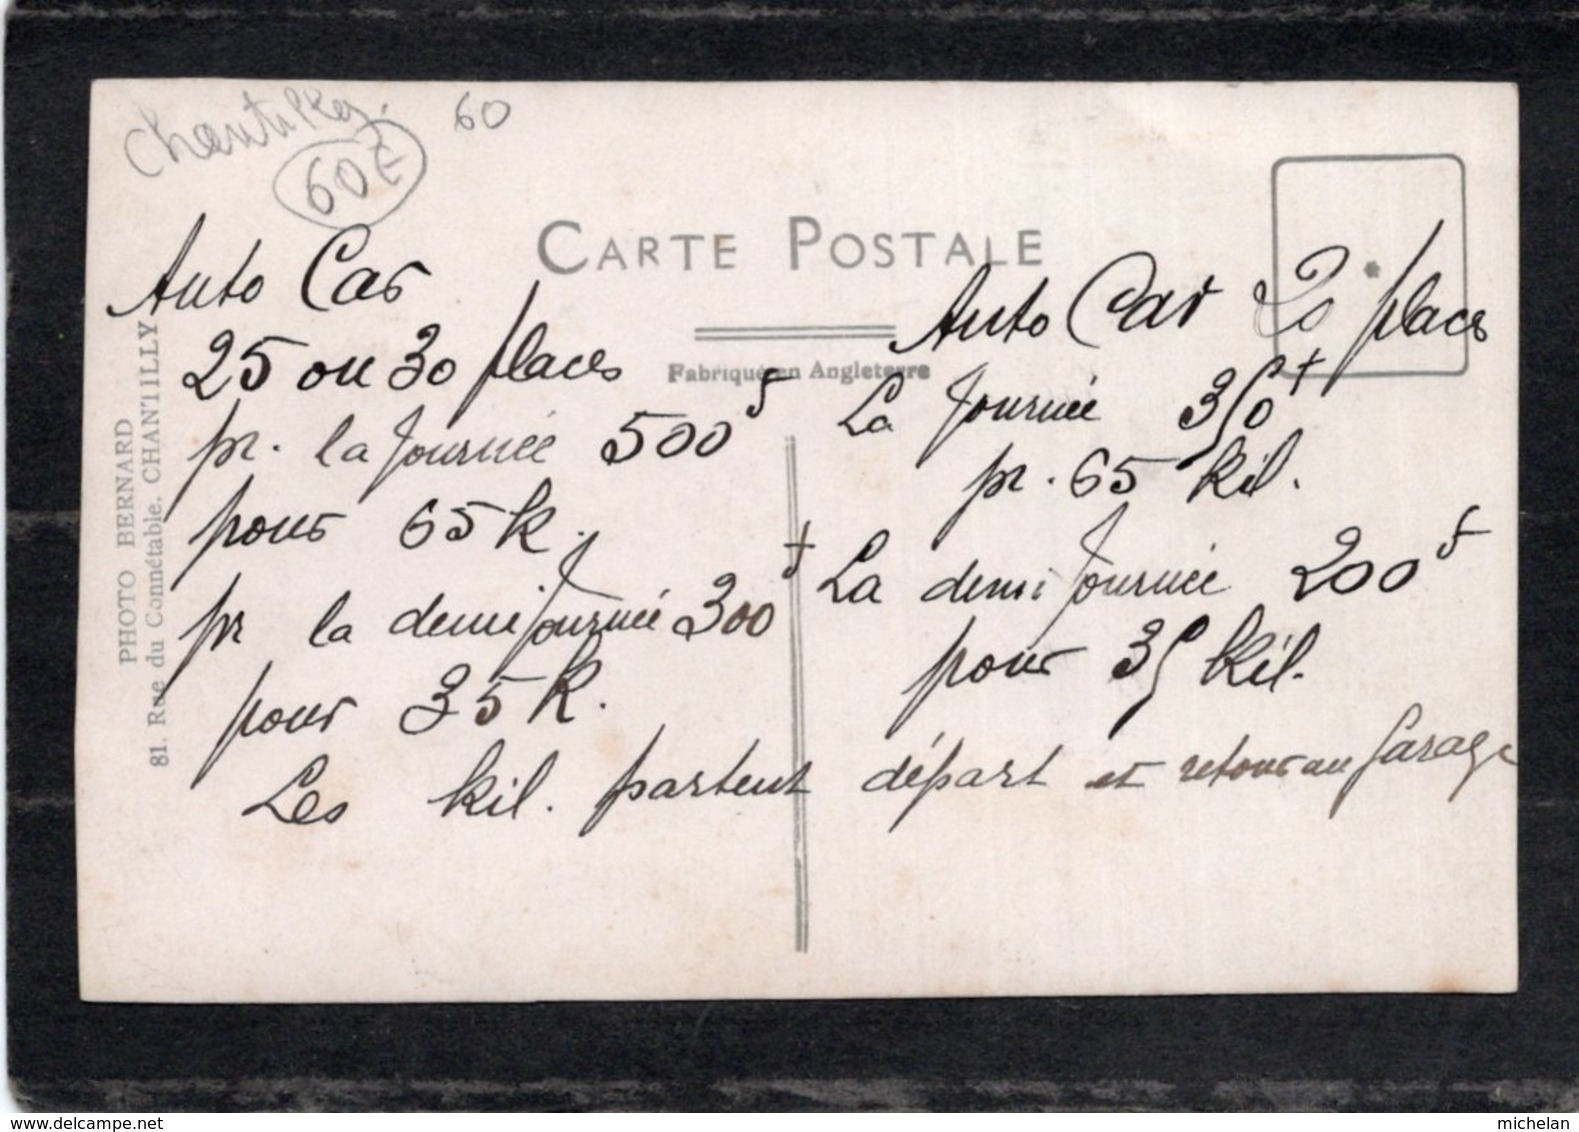 Chantilly.
60
60€
CARTE POSTALE
Fabriqué en Angleterre
PHOTO BERNARD
81, Rue du Connétable, CHANTILLY
Auto Car
25 ou 30 places
pr. la journée 500f
pour 65 k.
pr la demi journée 300f
pour 35 k.
Auto Car 20 places
La journée 350f
pr. 65 kil.
La demi journée 200f
pour 35 kil.
Les kil. partent départ et retour au garage
www.delcampe.net
michelan